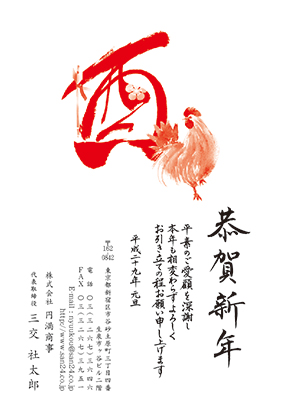 酉
恭賀新年
平素のご愛顧を深謝し
本年も相変わらずよろしく
お引き立ての程お願い申し上げます
平成二十九年 元旦
〒162-0842
東京都新宿区市谷砂土原町三丁目四番
生泉市ヶ谷ビル二階
電話 〇三(三二六七)三六四六
FAX 〇三(三二六七)三九五一
Email : nyuukou@san24.co.jp
http://www.san24.co.jp
株式会社 円満商事
代表取締役 三交 社太郎